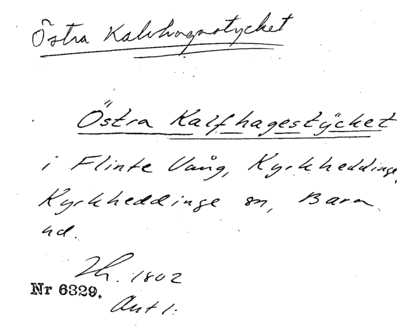 Östra Kalvhagastycket
Östra Kalfhagestÿcket
i Flinte Vång, Kyrkheddinge,
Kyrkheddinge sn, Bara
hd.
1802
Nr 6329.
Ant 1: